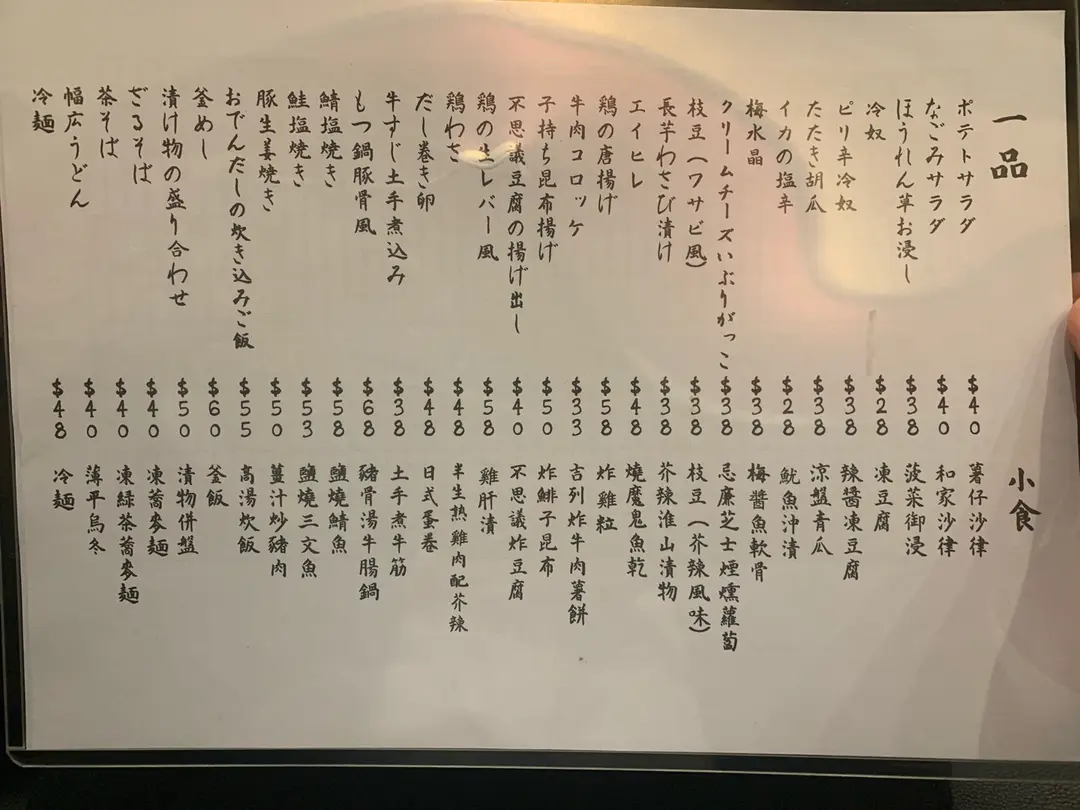 一品 小食
ポテトサラダ $40 薯仔沙律
なごみサラダ $40 和家沙律
ほうれん草お浸し $38 菠菜御浸
冷奴 $28 凍豆腐
ピリ辛冷奴 $38 辣醬凍豆腐
たたき胡瓜 $38 涼盤青瓜
イカの塩辛 $28 魷魚沖漬
梅水晶 $38 梅醬魚軟骨
クリームチーズいぶりがっこ $38 忌廉芝士煙燻蘿蔔
枝豆(ワサビ風) $38 枝豆(芥辣風味)
長芋わさび漬け $38 芥辣淮山漬物
エイヒレ $48 燒魔鬼魚乾
鶏の唐揚げ $58 炸雞粒
牛肉コロッケ $33 吉列炸牛肉薯餅
子持ち昆布揚げ $50 炸鯡子昆布
不思議豆腐の揚げ出し $40 不思議炸豆腐
鶏の生レバー風 $58 雞肝漬
鶏わさ $48 半生熱雞肉配芥辣
だし巻き卵 $48 日式蛋卷
牛すじ土手煮込み $38 土手煮牛筋
もつ鍋豚骨風 $68 豬骨湯牛腸鍋
鯖塩焼き $58 鹽燒鯖魚
鮭塩焼き $53 鹽燒三文魚
豚生姜焼き $50 薑汁炒豬肉
おでんだしの炊き込みご飯 $55 高湯炊飯
釜めし $60 釜飯
漬け物の盛り合わせ $50 漬物併盤
ざるそば $40 凍蕎麥麵
茶そば $40 凍緑茶蕎麥麵
幅広うどん $40 薄平烏冬
冷麺 $48 冷麵